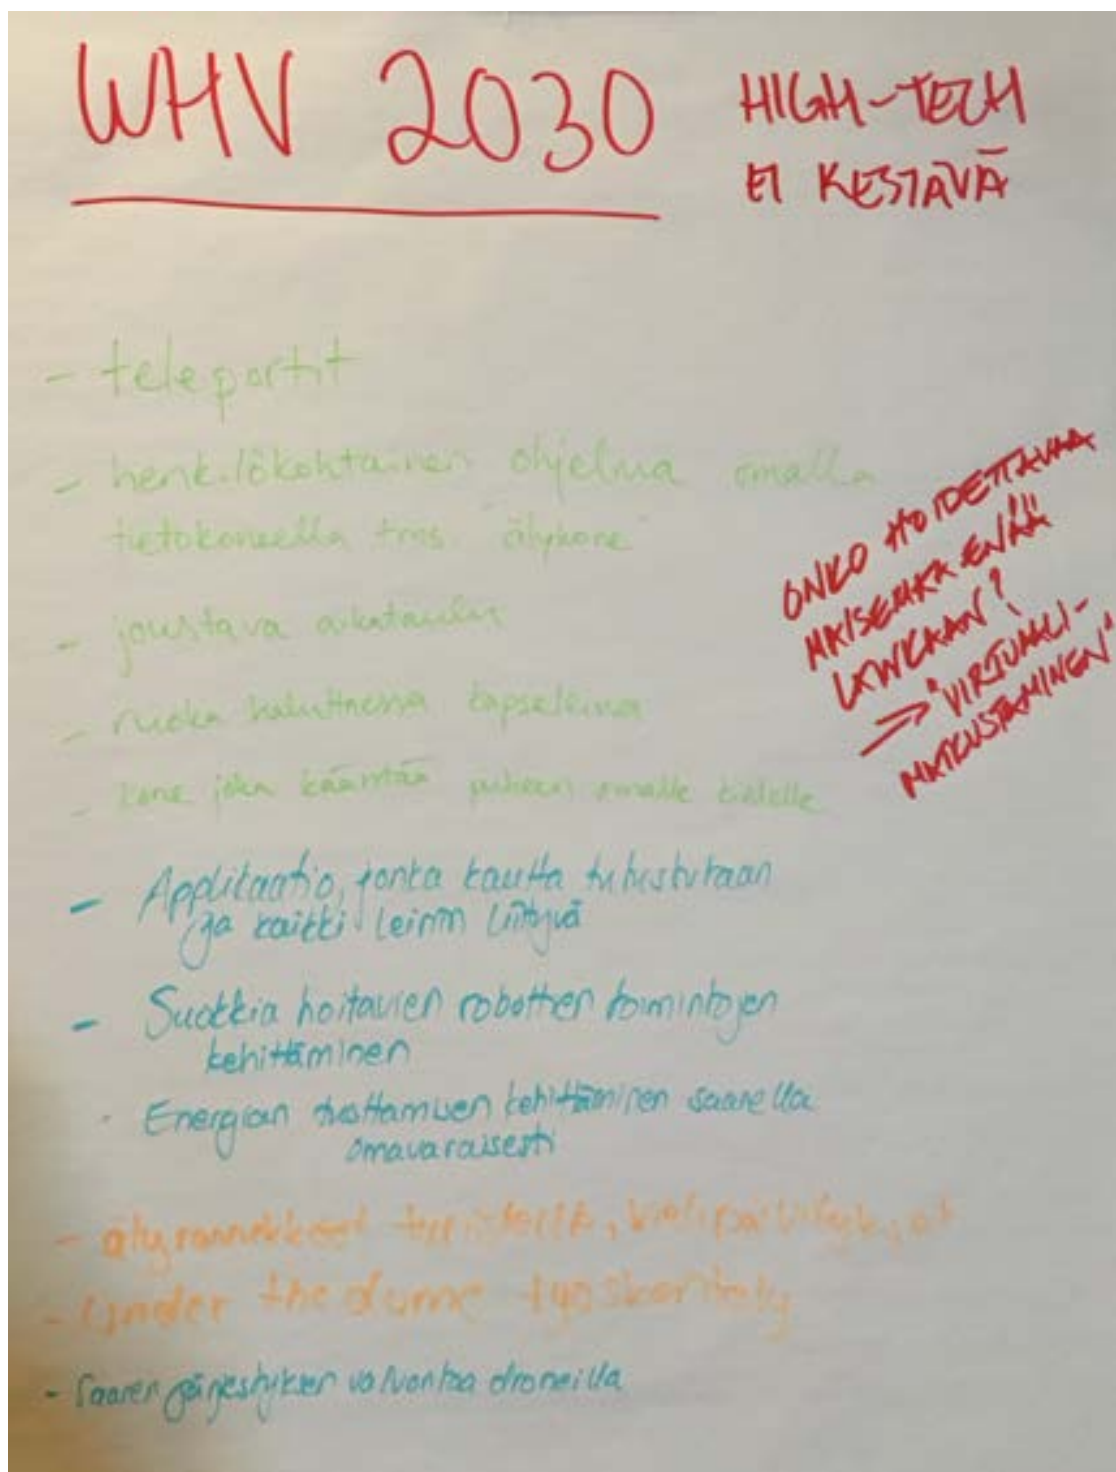 WHV 2030
HIGH-TECH
EI KESTÄVÄ
- teleportit
- henkilökohtainen ohjelma omalla
tietokoneella tms. "älykone"
- joustava aikataulu
- ruoka haluttaessa kapseleina
- kone joka kääntää puheen omalle kielelle
ONKO HOIDETTAVAA
MAISEMAA ENÄÄ
LAINKAAN?
⇒ "VIRTUAALI-
MATKUSTAMINEN"
- Applikaatio, jonka kautta tutustutaan
ja kaikki leiriin liittyvä
- Suokkia hoitavien robottien toimintojen
kehittäminen
- Energian tuottamisen kehittäminen saarella
omavaraisesti
- älyrannekkeet
- Under the dome työskentely
- Saaren järjestyksen valvontaa droneilla